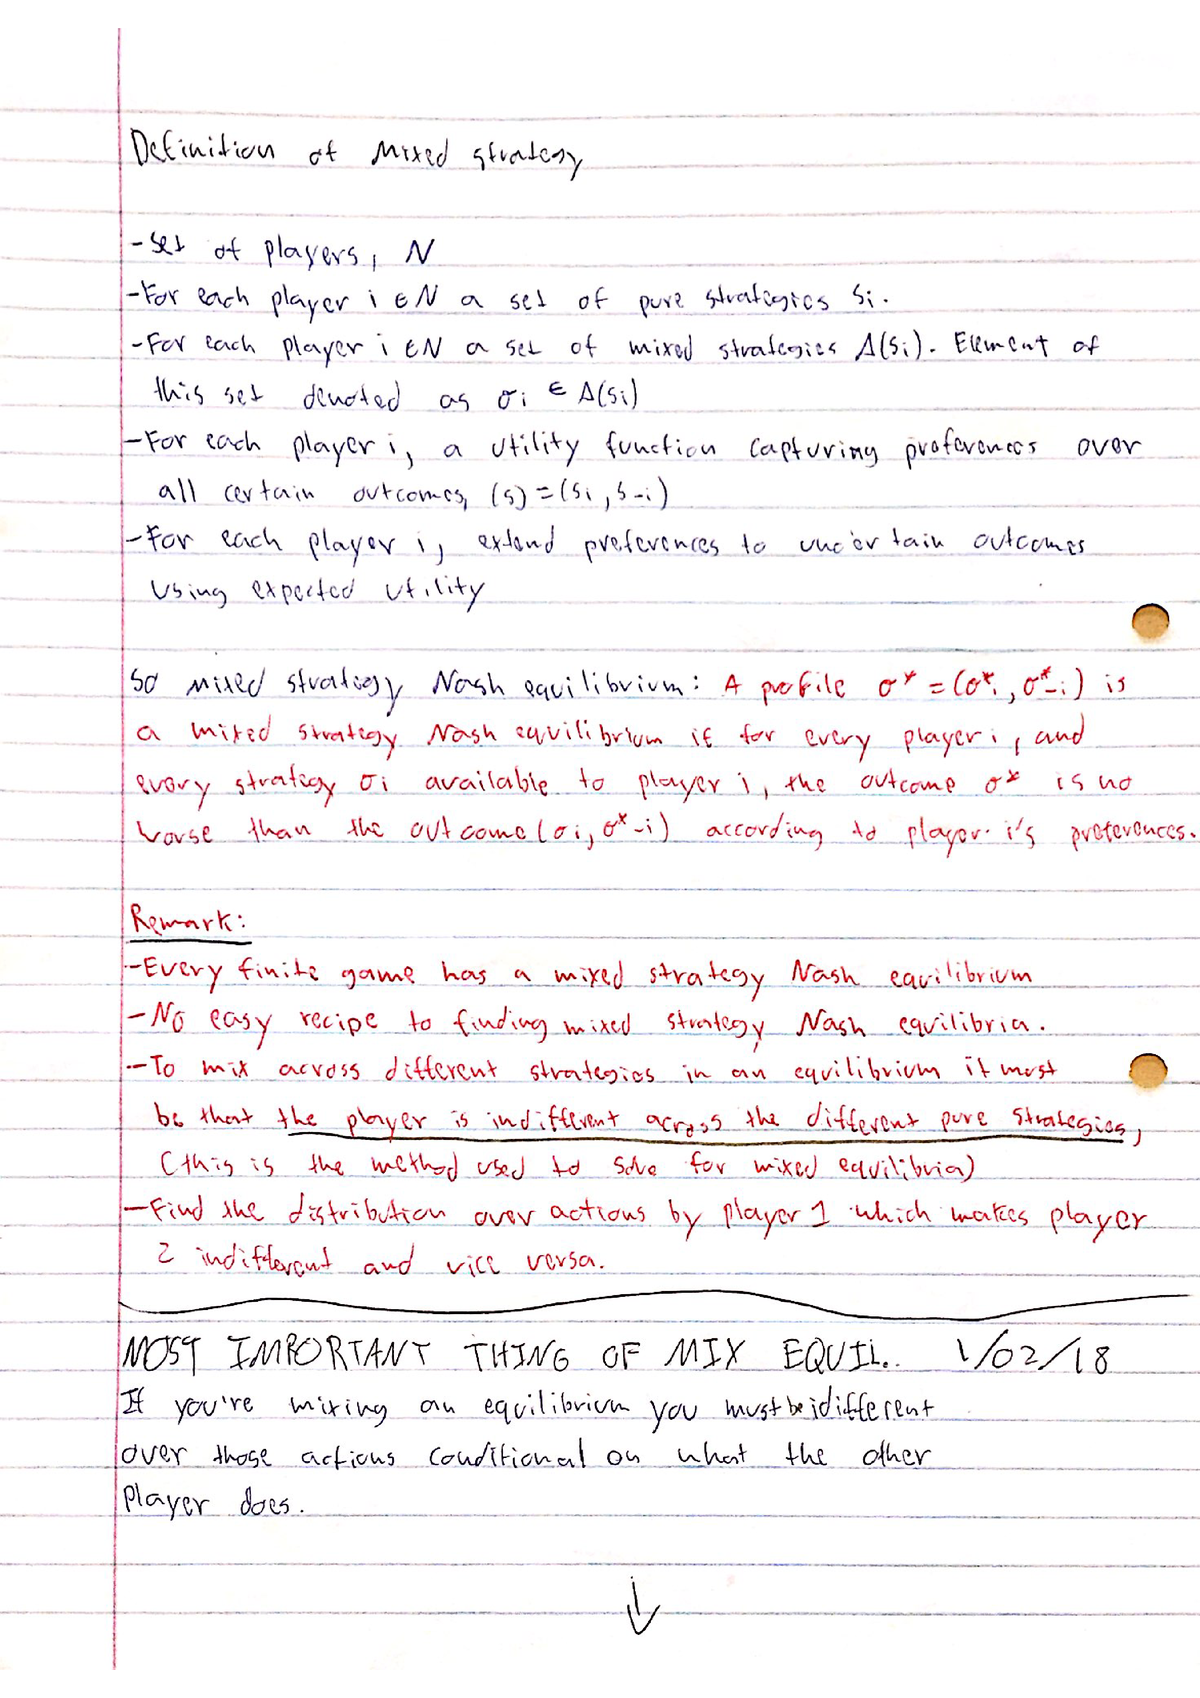 Definition of Mixed strategy
- Set of players, N
- For each player i ∈ N a set of pure strategies Si.
- For each player i ∈ N a set of mixed strategies Δ(Si). Element of
this set denoted as σi ∈ Δ(Si)
- For each player i, a utility function capturing preferences over
all certain outcomes, (s) = (si, s-i)
- For each player i, extend preferences to uncertain outcomes
using expected utility
So mixed strategy Nash equilibrium: A profile σ* = (σ*i, σ*-i) is
a mixed strategy Nash equilibrium if for every player i, and
every strategy σi available to player i, the outcome σ* is no
worse than the outcome (σi, σ*-i) according to player i's preferences.
Remark:
- Every finite game has a mixed strategy Nash equilibrium
- No easy recipe to finding mixed strategy Nash equilibria.
- To mix across different strategies in an equilibrium it must
be that the player is indifferent across the different pure strategies,
(this is the method used to solve for mixed equilibria)
- Find the distribution over actions by player 1 which makes player
2 indifferent and vice versa.
MOST IMPORTANT THING OF MIX EQUIL.. 1/02/18
If you're mixing an equilibrium you must be idifferent
over those actions conditional on what the other
player does.
↓